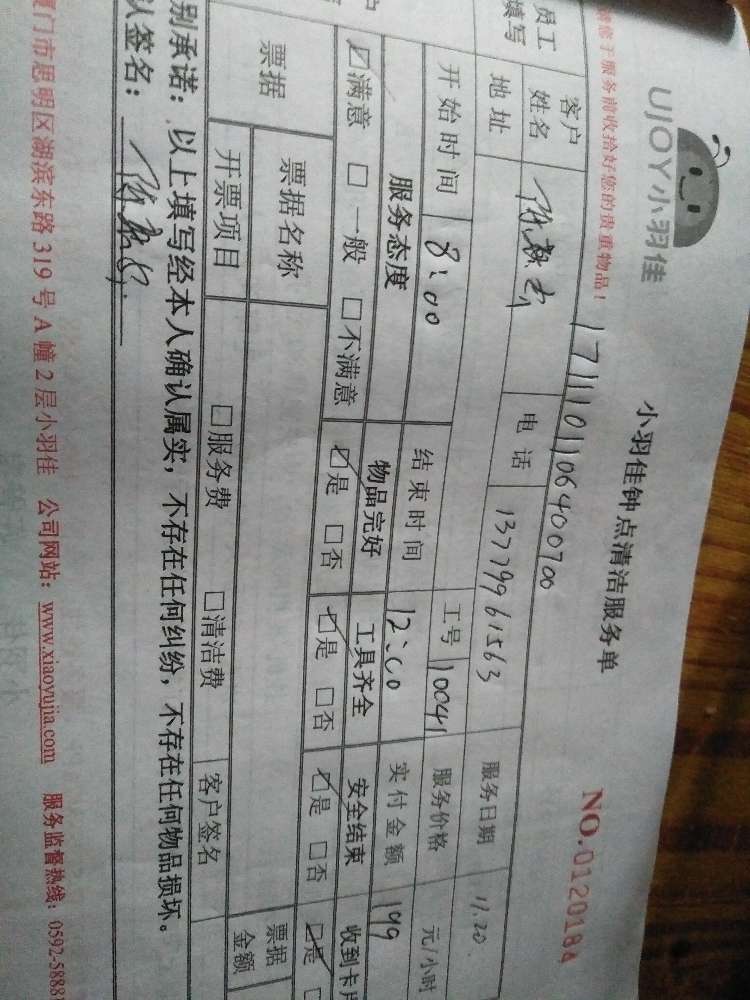 UJOY小羽佳
小羽佳钟点清洁服务单
NO.0120184
于服务前收拾好您的贵重物品！
1711101106400700
员工
填写
客户
姓名
电话
13779961563
服务日期
11.20
地址
工号
10041
服务价格
元/小时
开始时间
8:00
结束时间
12:00
实付金额
199
服务态度
物品完好
工具齐全
安全结束
收到卡片
☑满意 □一般 □不满意
☑是 □否
☑是 □否
☑是 □否
☑是
票据
票据名称
票据
金额
开票项目
□服务费
□清洁费
客户签名
别承诺：以上填写经本人确认属实，不存在任何纠纷，不存在任何物品损坏。
认签名：
厦门市思明区湖滨东路319号A幢2层小羽佳 公司网站：www.xiaoyujia.com 服务监督热线：0592-5888